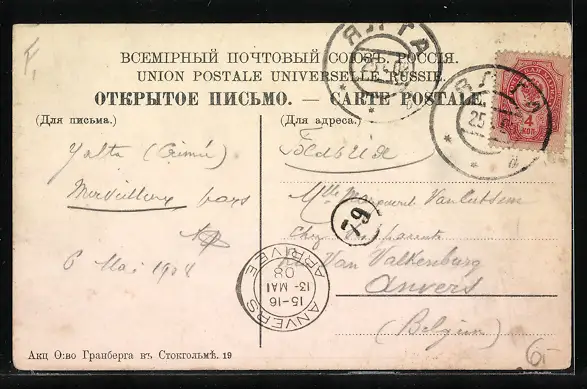 ВСЕМІРНЫЙ ПОЧТОВЫЙ СОЮЗЪ. РОССІЯ.
UNION POSTALE UNIVERSELLE. RUSSIE.
ОТКРЫТОЕ ПИСЬМО. — CARTE POSTALE.
(Для письма.)
(Для адреса.)
Yalta (Crimée)
Merveilleux pays
6 Mai 1908
Бельгія
Mlle Marguerite Van Cutsem
Chez
Van Valkenburg
Anvers
(Belgien)
ЯЛТА
25
ЯЛТА
25
4
КОП
79
ANVERS
15-16
13- MAI
08
ARRIVEE
65
Акц О:во Гранберга въ Стокгольмѣ. 19